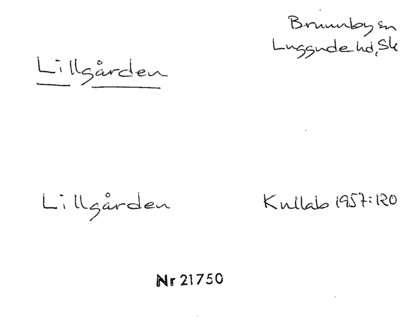 Brunnby sn
Luggude hd, Sk
Lillgården
Lillgården Kullab 1957:120
Nr 21750